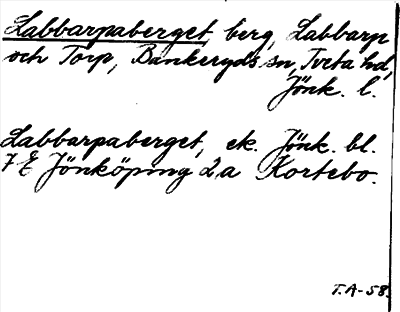 Labbarpaberget, berg, Labbarp
och Torp, Bankeryds sn, Tveta hd,
Jönk. l.
Labbarpaberget, ek. Jönk. bl.
7 E Jönköping 2 a Kortebo.
T.A-58.